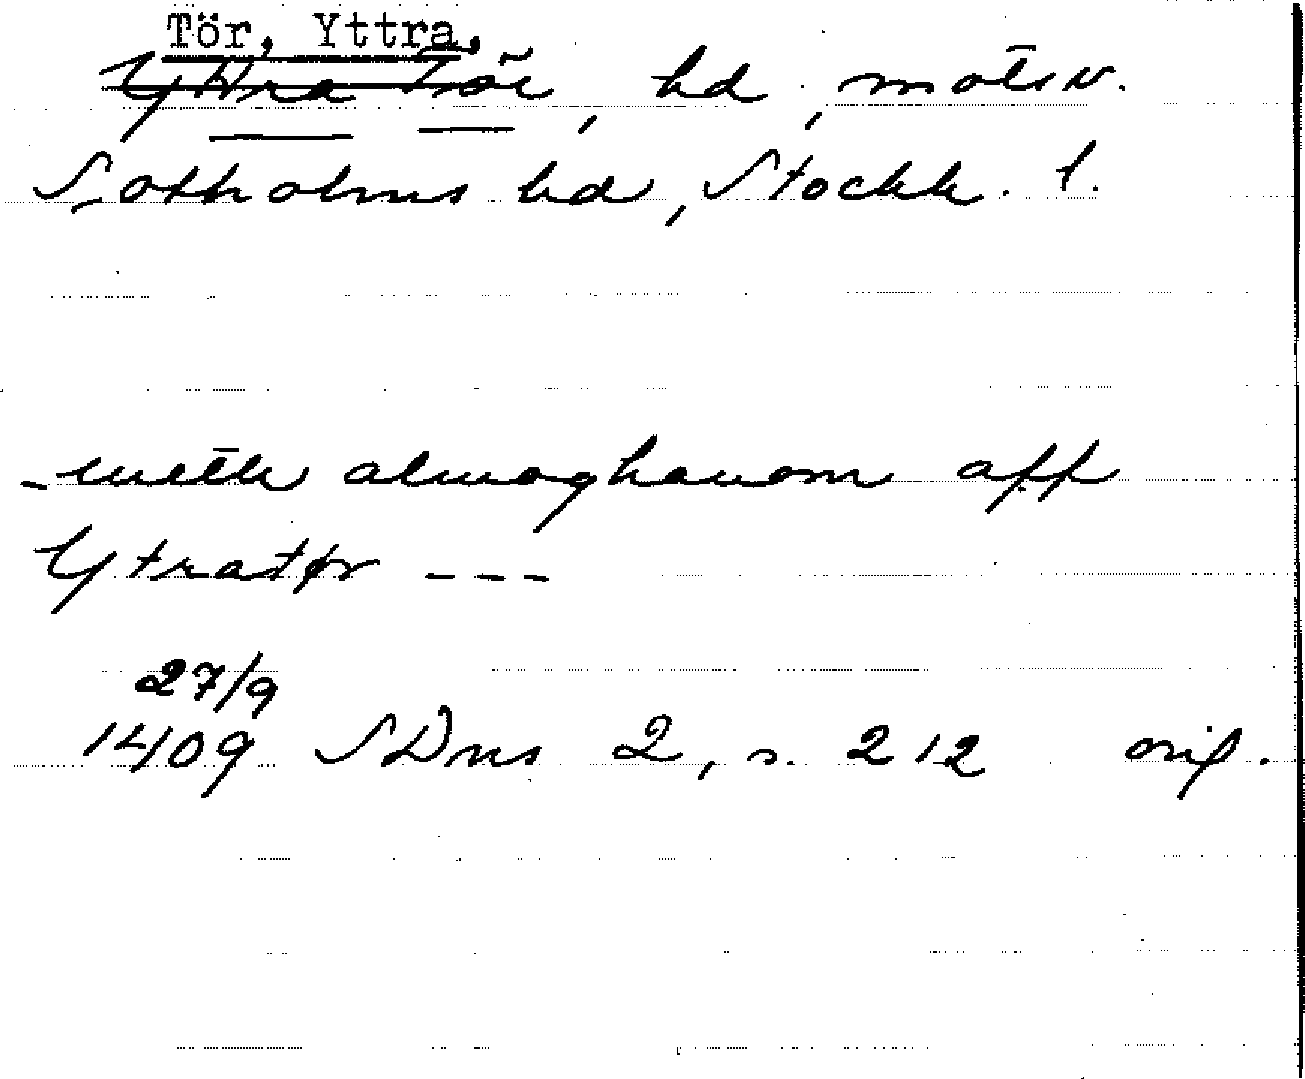 Tör, Yttra,
Yttra Tör, hd, motsv.
Sotholms hd, Stockh. l.
- meth almoghanom aff
Ytratør ---
27/9
1409 SDns 2, s. 212 orig.